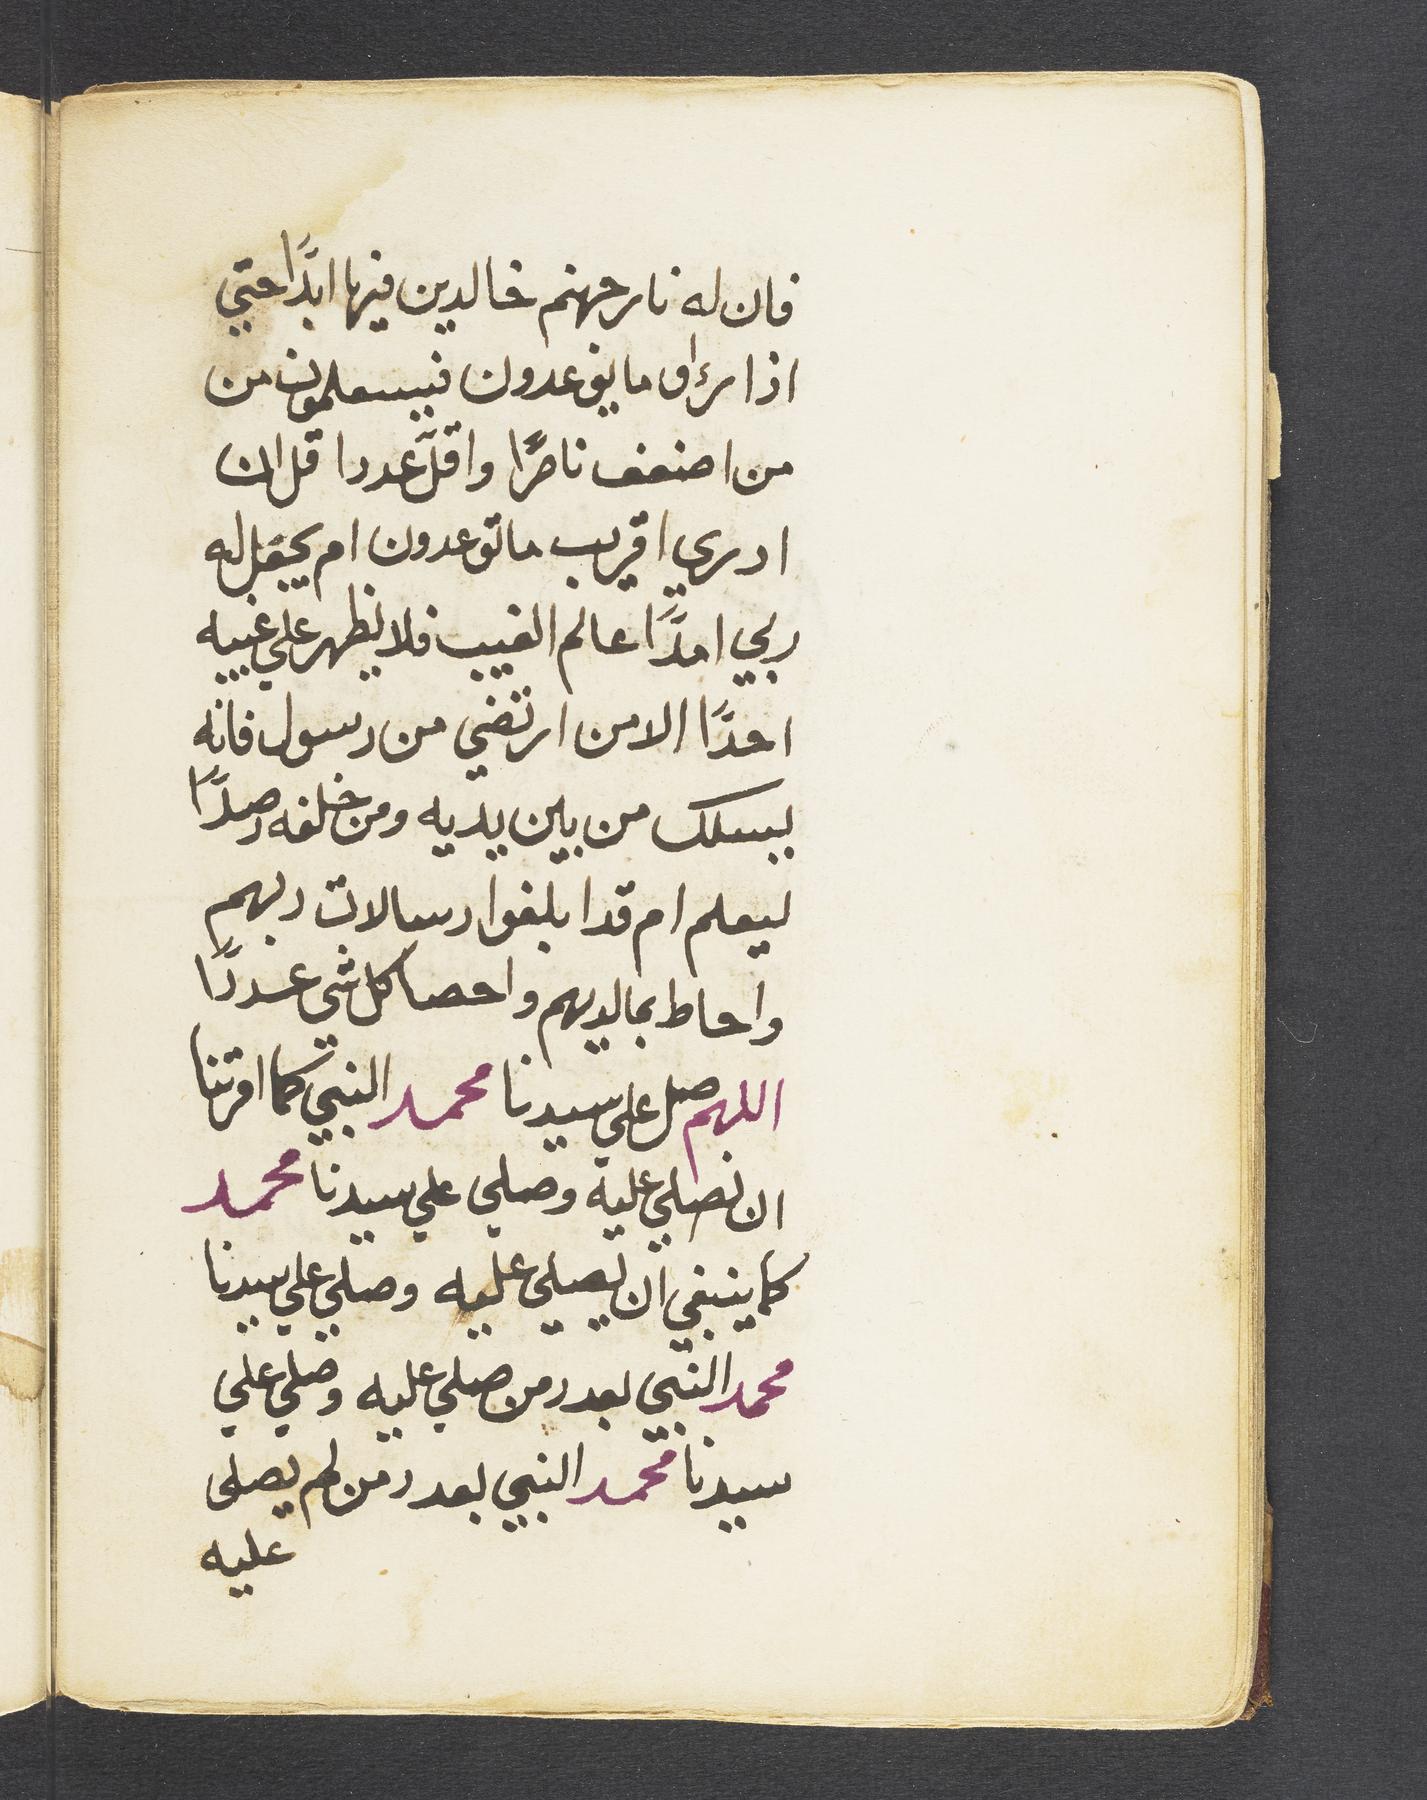 فان له نار جهنم خالدين فيها ابدًا حتي
اذا رءاو ما يوعدون فسيعلمون من
من اضعف ناصرًا واقلَّ عددا قل ان
ادري اقريب ما توعدون ام يجعل له
ربي امدًا عالم الغيب فلا يظهر علي غيبه
احدًا الا من ارتضي من رسول فانه
يسلك من بين يديه ومن خلفه رصدًا
ليعلم ام قد ابلغوا رسالات ربهم
واحاط بما لديهم واحصا كل شي عددًا
اللهم صل علي سيدنا محمد النبي كما امرتنا
ان نصلي عليه وصلي علي سيدنا محمد
كما ينبغي ان يصلي عليه وصلي علي سيدنا
محمد النبي بعدد من صلي عليه وصلي علي
سيدنا محمد النبي بعدد من لم يصلي
عليه